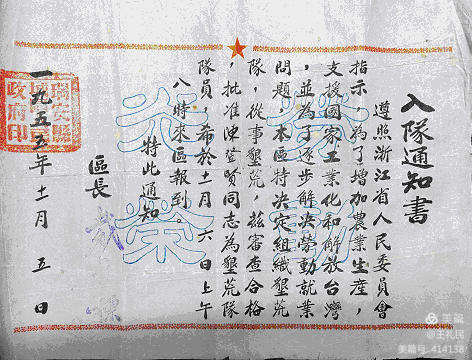 入隊通知書
遵照浙江省人民委員會
指示，為了增加農業生産，
支援國家工業化和解放台灣
，並為了逐步解决勞動就業
問題，本區特决定組織墾荒
隊，從事墾荒，兹審查合格
，批准陳登賢同志為墾荒隊
隊員，希於十一月六日上午
八時來區報到
特此通知
區長
一九五五年十一月五日
瑞安縣
政府印
勞動
光榮
美篇
@王礼民
美篇号_414138